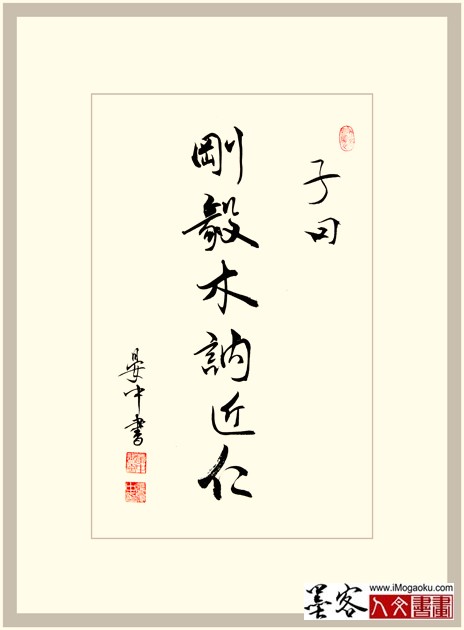 子曰
剛毅木訥近仁
晏中書
墨客
www.iMogaoku.com
人文書畫